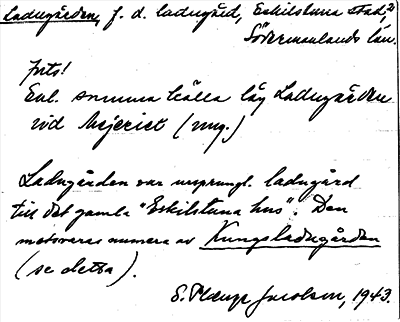 Ladugården, f. d. ladugård, Eskilstuna stad,
Södermanlands län.
Jfts!
Enl. samma källa låg Ladugården
vid Mejeriet (mng.)
Ladugården var ursprungl. ladugård
till det gamla "Eskilstuna hus". Den
motsvaras numera av Kungsladugården
(se detta).
S. Jacobson, 1943.